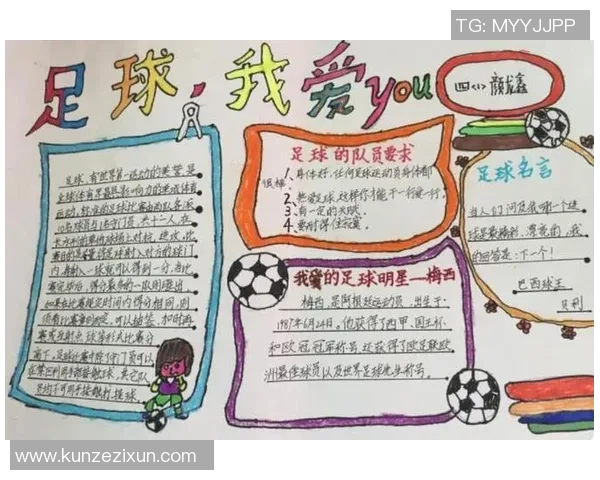 TG: MYYJJPP
足球，我爱you
四〈1〉颜龙鑫
足球，有世界第一运动的美誉，是
全球体育界最具影响力的单项体育
运动，标准的足球比赛由两队各派
10名球员与1名守门员，共十二人，在
长方形的草地球场上对抗、进攻，比
赛目的是尽量将足球射入对方的球门
内，每射入一球就可以得到一分，当比
赛完毕后，得分最多的一队则胜出，
如果在比赛规定时间内得分相同，则
须看比赛章则而定，可以抽签、加时再
赛或互射点球等形式比赛分
高下，足球比赛中除了守门员可以
在禁区利用手部接触足球，其它队
员均不可用手接触打、提球。
足球的队员要求
1、身体好，任何足球运动员身体都
很棒。
2、热爱足球，这样你才能干一行爱一行。
3、有一定的天赋。
4、要耐得住寂寞。
我爱的足球明星—梅西
梅西，是阿根廷运动员，出生于
1987年6月24日，他获得了西甲、国王杯
和欧冠冠军称号，还获得了欧足联欧
洲最佳球员以及世界足球先生称号。
足球名言
当人们问及我哪一个进
球是最精彩、漂亮的，我
的回答是：下一个！
巴西球王
贝利
www.kunzezixun.com